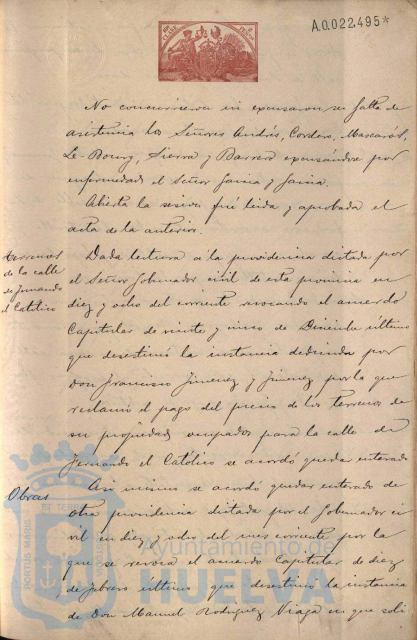 A.0.022.495*
No concurrieron ni excusaron su falta de
asistencia los Señores Andrés, Cordero, Mascarós,
Le-Bourg, Sierra y Barrera excusándose por
enfermedad el Señor García y García.
Abierta la sesion fué leida y aprobada el
acta de la anterior.
terrenos
de la calle
de Fernando
el Católico
Dada lectura á la providencia dictada por
el Señor Gobernador civil de esta provincia en
diez y ocho del corriente revocando el acuerdo
Capitular de veinte y cinco de Diciembre último
que desestimó la instancia deducida por
Don Francisco Jimenez y Jimenez por la que
reclamó el pago del precio de los terrenos de
su propiedad ocupados para la calle de
Fernando el Católico se acordó quedar enterado
Obras
Asi mismo se acordó quedar enterado de
otra providencia dictada por el Gobernador ci
vil en diez y ocho del mes corriente por la
que se revoca el acuerdo Capitular de diez
de febrero último que desestimó la instancia
de Don Manuel Rodriguez en que soli
Ayuntamiento de
HUELVA